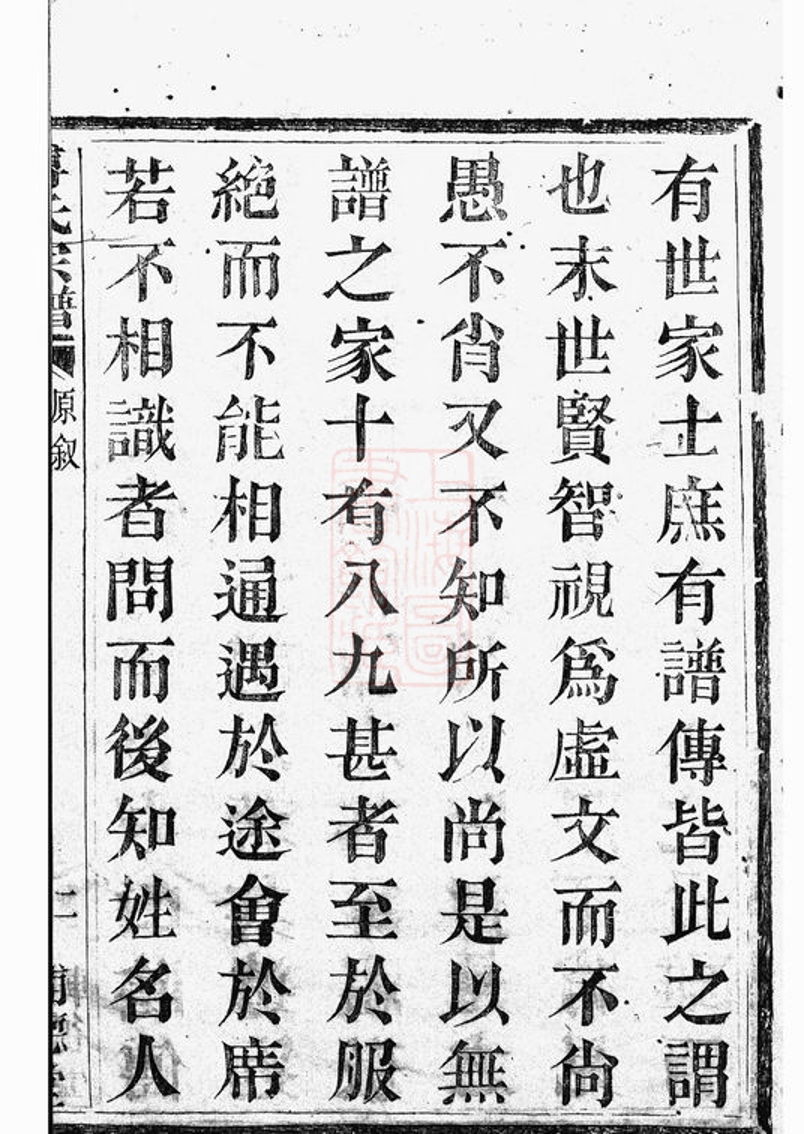 有世家士庶有譜傳皆此之謂
也末世賢智視爲虛文而不尙
愚不肖又不知所以尚是以無
譜之家十有八九甚者至於服
絕而不能相通遇於途會於席
若不相識者問而後知姓名人
氏宗譜
原叙